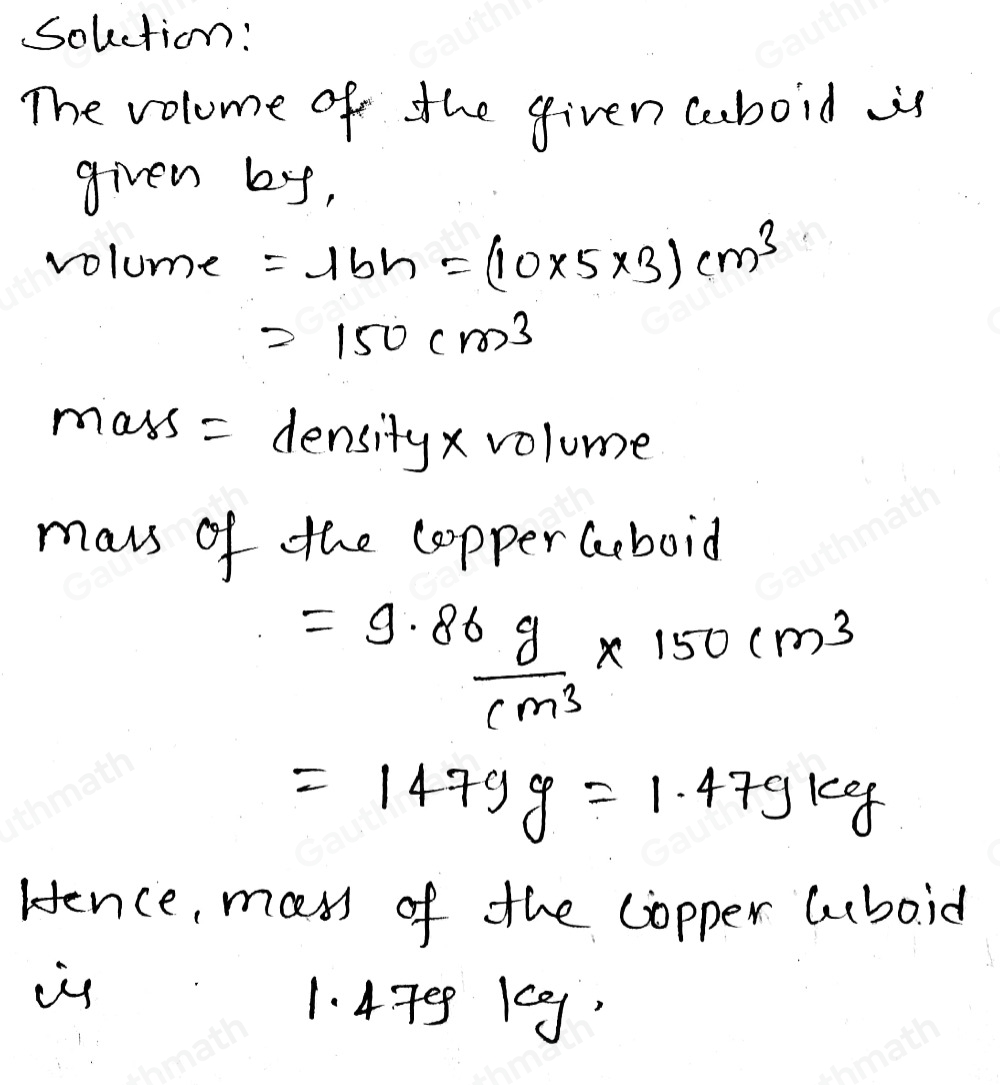 Solution:
The volume of the given cuboid is
given by,
volume = lbh = (10×5×3) cm³
= 150 cm³
mass = density × volume
mass of the copper cuboid
= 9.86 g/cm³ × 150 cm³
= 1479 g = 1.479 kg
Hence, mass of the copper cuboid
is 1.479 kg.